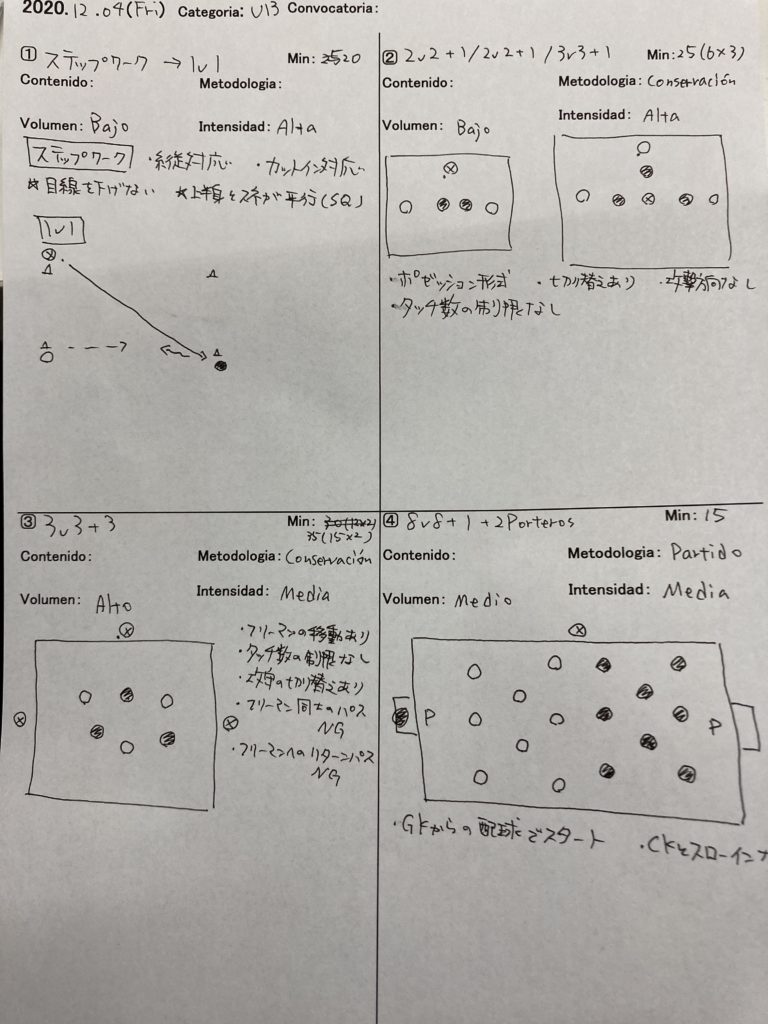 2020.12.04(Fri) Categoria: U13 Convocatoria:
① ステップワーク → 1v1 Min: 20
Contenido: Metodologia:
Volumen: Bajo Intensidad: Alta
ステップワーク ・縦対応 ・カットイン対応
☆目線を下げない ★上半身とスネが平行(SQ)
1v1
② 2v2+1/2v2+1/3v3+1 Min: 25(6×3)
Contenido: Metodologia: Conservación
Volumen: Bajo Intensidad: Alta
・ポゼッション形式 ・切り替えあり ・攻撃方向なし
・タッチ数の制限なし
③ 3v3+3 Min: 30(12×2)
35(15×2)
Contenido: Metodologia: Conservación
Volumen: Alto Intensidad: Media
・フリーマンの移動あり
・タッチ数の制限なし
・攻守の切り替えあり
・フリーマン同士のパス
NG
・フリーマンへのリターンパス
NG
④ 8v8+1+2Porteros Min: 15
Contenido: Metodologia: Partido
Volumen: Medio Intensidad: Media
P P
・GKからの配球でスタート ・CKとスローイン